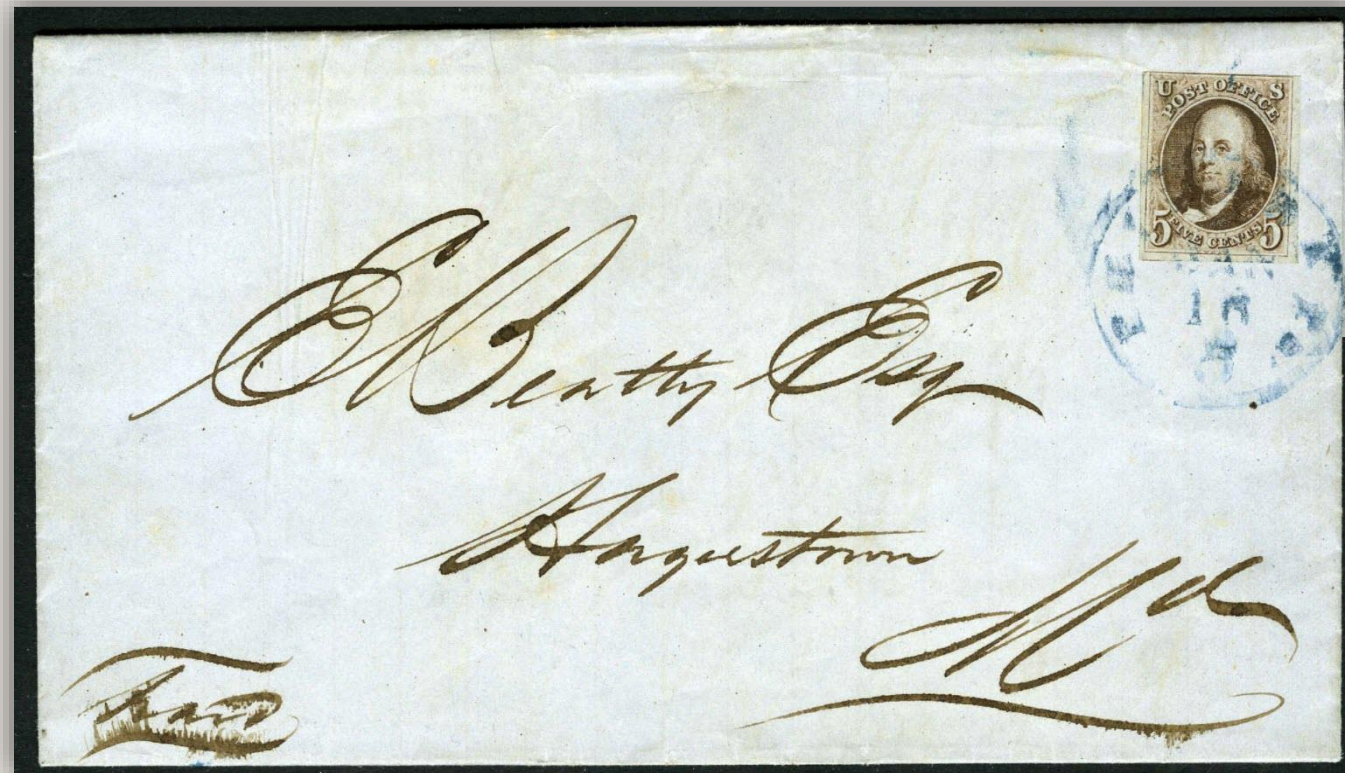 U S
POST OFFICE
5 FIVE CENTS 5
E Beatty Esq
Hagerstown
Md